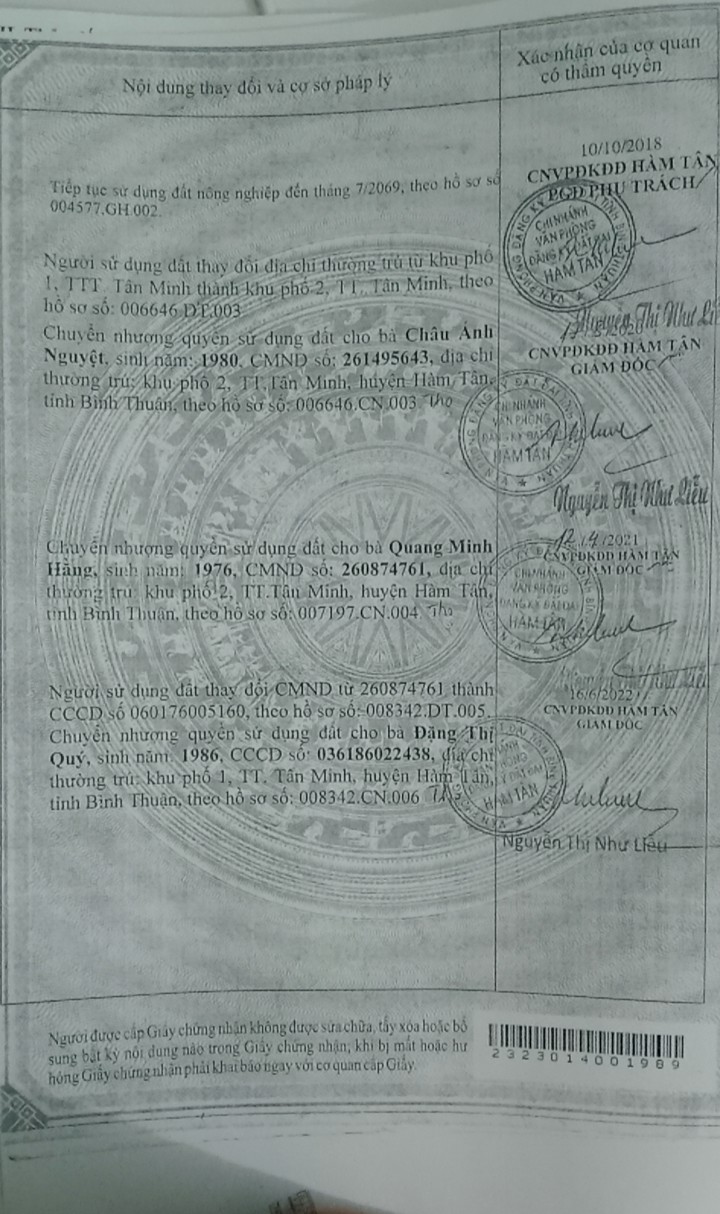 Nội dung thay đổi và cơ sở pháp lý
Xác nhận của cơ quan
có thẩm quyền
Tiếp tục sử dụng đất nông nghiệp đến tháng 7/2069, theo hồ sơ số
004577.GH.002.
10/10/2018
CNVPĐKĐĐ HÀM TÂN
PGĐ PHỤ TRÁCH
CHI NHÁNH
VĂN PHÒNG
ĐĂNG KÝ ĐẤT ĐAI
HÀM TÂN
Nguyễn Thị Như Liễu
Người sử dụng đất thay đổi địa chỉ thường trú từ khu phố
1, TTT. Tân Minh thành khu phố 2, TT. Tân Minh, theo
hồ sơ số: 006646.DT.003
Chuyển nhượng quyền sử dụng đất cho bà Châu Ánh
Nguyệt, sinh năm: 1980, CMND số: 261495643, địa chỉ
thường trú: khu phố 2, TT.Tân Minh, huyện Hàm Tân,
tỉnh Bình Thuận, theo hồ sơ số: 006646.CN.003 Thọ
CNVPĐKĐĐ HÀM TÂN
GIÁM ĐỐC
CHI NHÁNH
VĂN PHÒNG
ĐĂNG KÝ ĐẤT ĐAI
HÀM TÂN
Nguyễn Thị Như Liễu
Chuyển nhượng quyền sử dụng đất cho bà Quang Minh
Hằng, sinh năm: 1976, CMND số: 260874761, địa chỉ
thường trú: khu phố 2, TT.Tân Minh, huyện Hàm Tân,
tỉnh Bình Thuận, theo hồ sơ số: 007197.CN.004 Thọ
12/4/2021
CNVPĐKĐĐ HÀM TÂN
GIÁM ĐỐC
CHI NHÁNH
VĂN PHÒNG
ĐĂNG KÝ ĐẤT ĐAI
HÀM TÂN
Người sử dụng đất thay đổi CMND từ 260874761 thành
CCCD số 060176005160, theo hồ sơ số: 008342.DT.005.
Chuyển nhượng quyền sử dụng đất cho bà Đặng Thị
Quý, sinh năm: 1986, CCCD số: 036186022438, địa chỉ
thường trú: khu phố 1, TT. Tân Minh, huyện Hàm Tân,
tỉnh Bình Thuận, theo hồ sơ số: 008342.CN.006
16/6/2022
CNVPĐKĐĐ HÀM TÂN
GIÁM ĐỐC
HÀM TÂN
Nguyễn Thị Như Liễu
Người được cấp Giấy chứng nhận không được sửa chữa, tẩy xóa hoặc bổ
sung bất kỳ nội dung nào trong Giấy chứng nhận; khi bị mất hoặc hư
hỏng Giấy chứng nhận phải khai báo ngay với cơ quan cấp Giấy.
2323014001989